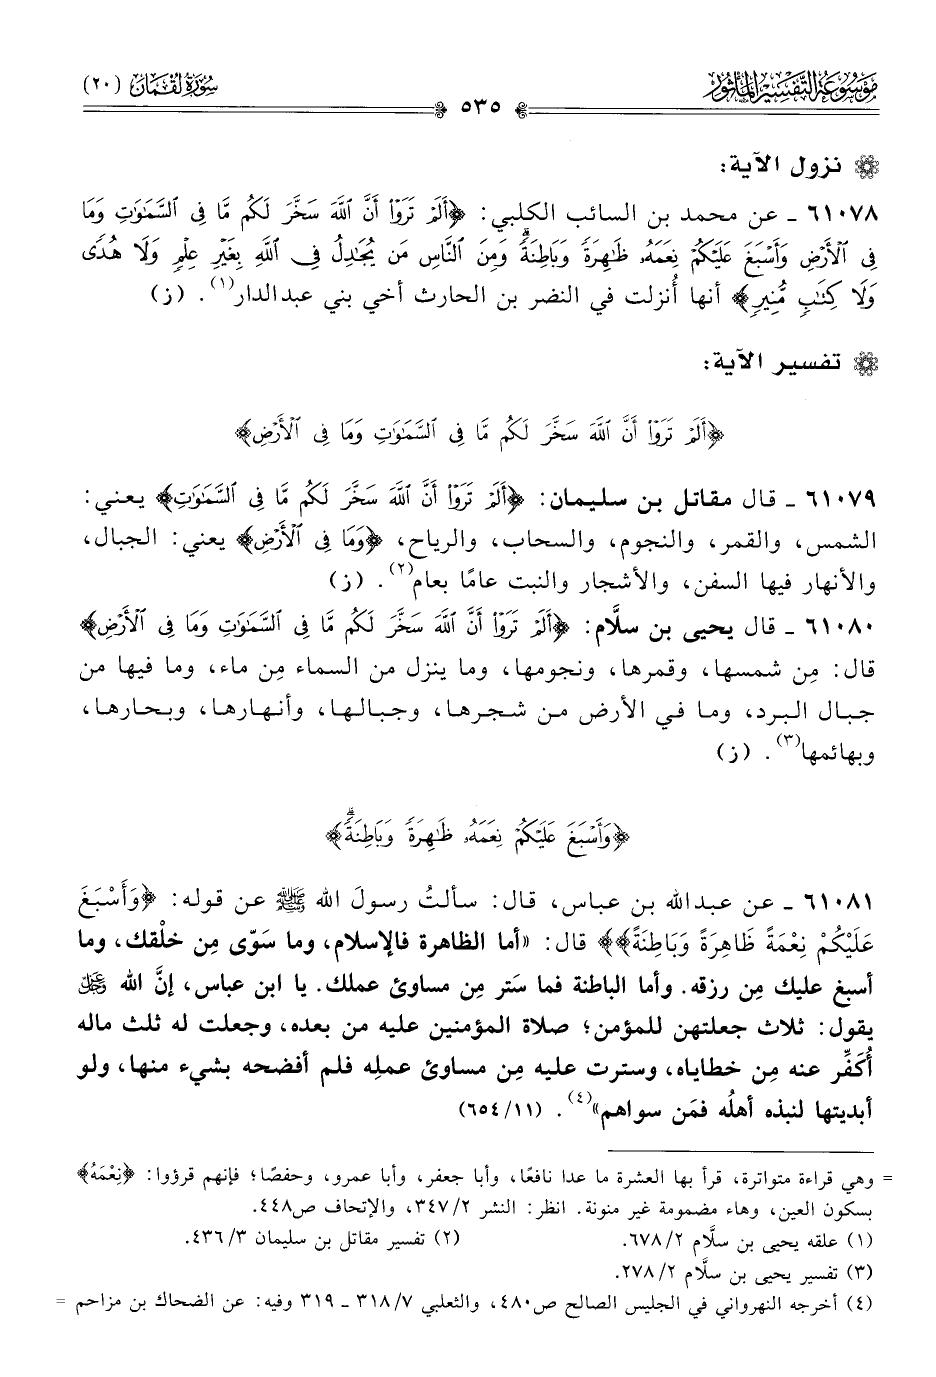 مَوْسُوعَة التَّفْسِيرِ المَأثُور
٥٣٥
سُورَةُ لُقْمَان (٢٠)
نزول الآية:
٦١٠٧٨ ـ عن محمد بن السائب الكلبي: ﴿أَلَمْ تَرَوْا أَنَّ ٱللَّهَ سَخَّرَ لَكُم مَّا فِى ٱلسَّمَٰوَٰتِ وَمَا
فِى ٱلْأَرْضِ وَأَسْبَغَ عَلَيْكُمْ نِعَمَهُۥ ظَٰهِرَةً وَبَاطِنَةً ۗ وَمِنَ ٱلنَّاسِ مَن يُجَٰدِلُ فِى ٱللَّهِ بِغَيْرِ عِلْمٍ وَلَا هُدًى
وَلَا كِتَٰبٍ مُّنِيرٍ﴾ أنها أُنزلت في النضر بن الحارث أخي بني عبدالدار(١). (ز)
تفسير الآية:
﴿أَلَمْ تَرَوْا أَنَّ ٱللَّهَ سَخَّرَ لَكُم مَّا فِى ٱلسَّمَٰوَٰتِ وَمَا فِى ٱلْأَرْضِ﴾
٦١٠٧٩ ـ قال مقاتل بن سليمان: ﴿أَلَمْ تَرَوْا أَنَّ ٱللَّهَ سَخَّرَ لَكُم مَّا فِى ٱلسَّمَٰوَٰتِ﴾ يعني:
الشمس، والقمر، والنجوم، والسحاب، والرياح، ﴿وَمَا فِى ٱلْأَرْضِ﴾ يعني: الجبال،
والأنهار فيها السفن، والأشجار والنبت عامًا بعام(٢). (ز)
٦١٠٨٠ ـ قال يحيى بن سلَّام: ﴿أَلَمْ تَرَوْا أَنَّ ٱللَّهَ سَخَّرَ لَكُم مَّا فِى ٱلسَّمَٰوَٰتِ وَمَا فِى ٱلْأَرْضِ﴾
قال: مِن شمسها، وقمرها، ونجومها، وما ينزل من السماء مِن ماء، وما فيها من
جبال البرد، وما في الأرض من شجرها، وجبالها، وأنهارها، وبحارها،
وبهائمها(٣). (ز)
﴿وَأَسْبَغَ عَلَيْكُمْ نِعَمَهُۥ ظَٰهِرَةً وَبَاطِنَةً ۗ﴾
٦١٠٨١ ـ عن عبدالله بن عباس، قال: سألتُ رسولَ الله ﷺ عن قوله: ﴿وَأَسْبَغَ
عَلَيْكُمْ نِعْمَةً ظَاهِرَةً وَبَاطِنَةً﴾﴾ قال: «أما الظاهرة فالإسلام، وما سَوّى مِن خلْقك، وما
أسبغ عليك مِن رزقه. وأما الباطنة فما سَتر مِن مساوئ عملك. يا ابن عباس، إنَّ الله ﷻ
يقول: ثلاث جعلتهن للمؤمن؛ صلاة المؤمنين عليه من بعده، وجعلت له ثلث ماله
أُكَفِّر عنه مِن خطاياه، وسترت عليه مِن مساوئ عمله فلم أفضحه بشيء منها، ولو
أبديتها لنبذه أهلُه فمَن سواهم»(٤). (١١/ ٦٥٤)
= وهي قراءة متواترة، قرأ بها العشرة ما عدا نافعًا، وأبا جعفر، وأبا عمرو، وحفصًا؛ فإنهم قرؤوا: ﴿نِعَمَهُ﴾
بسكون العين، وهاء مضمومة غير منونة. انظر: النشر ٣٤٧/٢، والإتحاف ص٤٤٨.
(١) علقه يحيى بن سلَّام ٦٧٨/٢.
(٢) تفسير مقاتل بن سليمان ٤٣٦/٣.
(٣) تفسير يحيى بن سلَّام ٢٧٨/٢.
(٤) أخرجه النهرواني في الجليس الصالح ص٤٨٠، والثعلبي ٣١٨/٧ ـ ٣١٩ وفيه: عن الضحاك بن مزاحم =